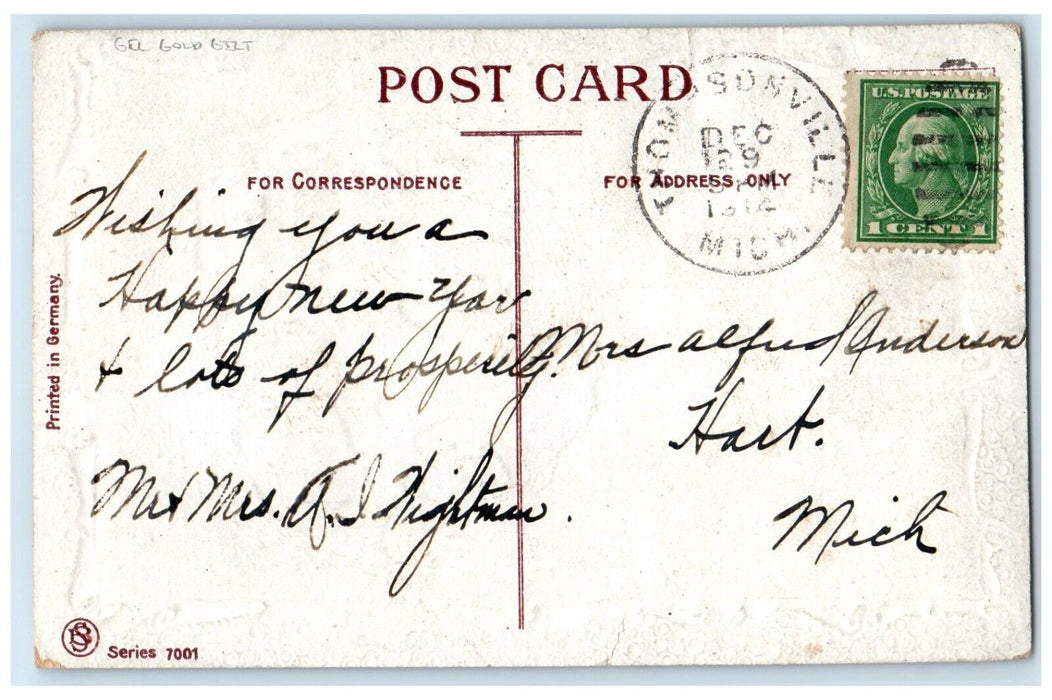 GEL GOLD GILT
POST CARD
THOMPSONVILLE
DEC
29
1914
MICH.
U.S. POSTAGE
1 CENT 1
FOR CORRESPONDENCE
FOR ADDRESS ONLY
Wishing you a
Happy new year
& lots of prosperity.
Mr & Mrs. A. I Wightman.
Mrs Alfred Anderson
Hart.
Mich
Printed in Germany.
Series 7001